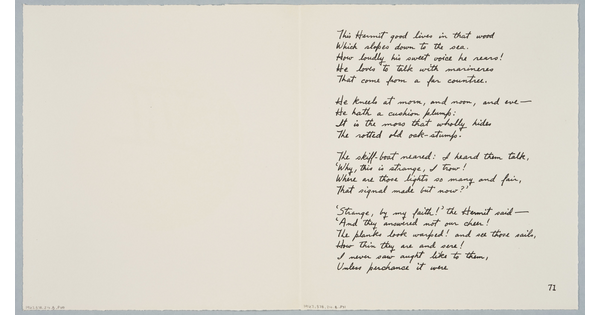 This Hermit good lives in that wood
Which slopes down to the sea.
How loudly his sweet voice he rears!
He loves to talk with marineres
That come from a far countree.

He kneels at morn, and noon, and eve—
He hath a cushion plump:
It is the moss that wholly hides
The rotted old oak-stump.

The skiff-boat neared: I heard them talk,
'Why, this is strange, I trow!
Where are those lights so many and fair,
That signal made but now?'

'Strange, by my faith!' the Hermit said—
'And they answered not our cheer!
The planks look warped! and see those sails,
How thin they are and sere!
I never saw aught like to them,
Unless perchance it were
71